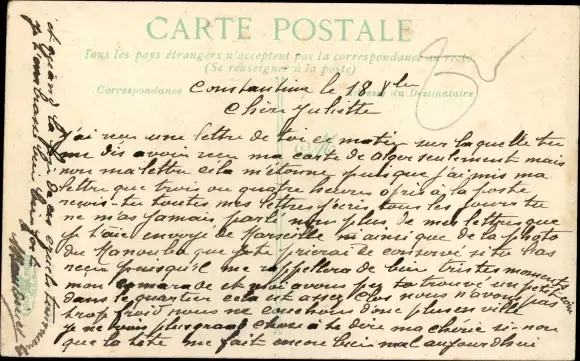 CARTE POSTALE
Tous les pays étrangers n'acceptent pas la correspondance au recto
(Se renseigner à la poste)
Correspondance
Adresse du Destinataire
Constantine le 18 Xbre
Chère Juliette
J'ai reçu une lettre de toi ce matin sur laquelle tu
me dis avoir reçu ma carte de Alger seulement mais
non ma lettre cela m'étonne puisque j'ai mis ma
lettre que trois ou quatre heures après à la poste
reçois-tu toutes mes lettres j'écris tous les jours tu
ne m'as jamais parlé non plus de mes lettres que
je t'ai envoyé de Marseille ni ainsi que de la photo
du Manouba que je te prierai de conservé si tu l'as
reçu puisqu'il me rappellera de bien tristes moments
mon camarade et moi avons pu trouvé un petit coin
dans le quartier cela est assez clos nous n'avons pas
trop froid nous ne couchons donc plus en ville
je ne vois plus grand chose à te dire ma chérie si non
que la tête me fait encore bien mal aujourd'hui
et quand la
je t'embrasse bien bien fort